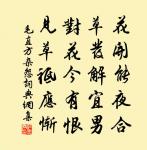 花開能夜合
草發解宜男
對花今有恨
見草祗應慚
毛直方雜怨詞典網集